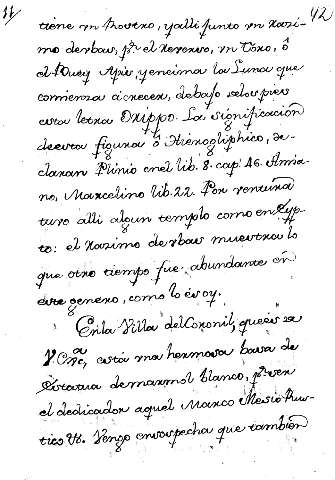 11 42
tiene un Rostro, y alli junto un razi-
mo de ubas, pr. el reverso, un Toro, ô
el Buey Apis, y encima la Luna que
comienza â crecer, debajo selos pies
esta letra Orippo. La significacion
de esta figura ô Hierogliphico, de-
claran Plinio en el lib. 8. cap. 46. Amia-
no, Marcelino lib. 22. Por ventura
tuvo alli algun templo como en Egyp-
to: el razimo de ubas muestra lo
que otro tiempo fue abundante en
este genero, como lo es oy.
En la Villa del Coronil, que es ea
V. Cnca, està una hermosa basa de
Estatua de marmol blanco, pr. ser
el dedicador aquel Marco Mesio Rus-
tico &. Tengo en sospecha que tambien